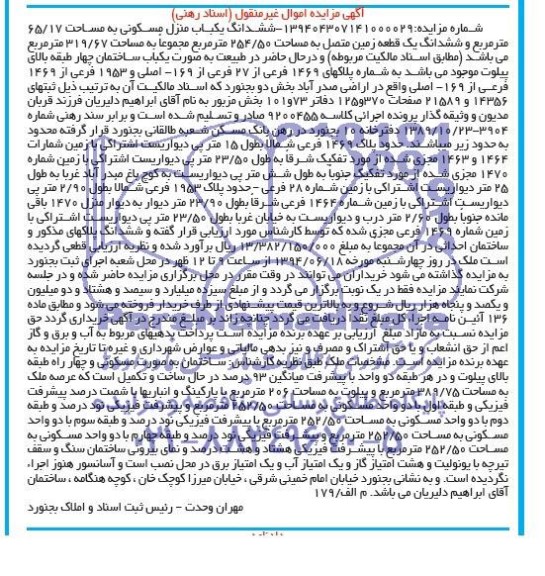 آگهی مزایده اموال غیرمنقول (اسناد رهنی)
شماره مزایده:۱۳۹۴۰۴۳۰۷۱۴۱۰۰۰۰۲۹-ششدانگ یکباب منزل مسکونی به مساحت ۶۵/۱۷
مترمربع و ششدانگ یک قطعه زمین متصل به مساحت ۲۵۴/۵۰ مترمربع مجموعا به مساحت ۳۱۹/۶۷ مترمربع
می باشد (مطابق اسناد مالکیت مربوطه) و درحال حاضر در طبیعت به صورت یکباب ساختمان چهار طبقه بالای
پیلوت موجود می باشد به شماره پلاکهای ۱۴۶۹ فرعی از ۲۷ فرعی از ۱۶۹- اصلی و ۱۹۵۳ فرعی از ۱۴۶۹
فرعی از ۱۶۹- اصلی واقع در اراضی صدر آباد بخش دو بجنورد که اسناد مالکیت آن به ترتیب ذیل ثبتهای
۱۴۳۵۶ و ۲۱۵۸۹ صفحات ۳۷۰و۱۲۵ دفاتر ۷۳و۱۰۱ بخش مزبور به نام آقای ابراهیم دلیریان فرزند قربان
مدیون و وثیقه گذار پرونده اجرائی کلاسه ۹۲۰۰۴۵۵ صادر و تسلیم شده است و برابر سند رهنی شماره
۳۹۰۴-۱۳۸۹/۱۰/۲۳ دفترخانه ۲۰ بجنورد در رهن بانک مسکن شعبه طالقانی بجنورد قرار گرفته محدود
به حدود زیر میباشند. حدود پلاک ۱۴۶۹ فرعی شمالا بطول ۱۵ متر پی دیواریست اشتراکی با زمین شمارات
۱۴۶۴ و ۱۴۶۳ مجزی شده از مورد تفکیک شرقا به طول ۲۳/۵۰ متر پی دیواریست اشتراکی با زمین شماره
۱۴۷۰ مجزی شده از مورد تفکیک جنوبا به طول شش متر پی دیواریست به کوچ باغ صدر آباد غربا به طول
۲۵ متر دیواریست اشتراکی با زمین شماره ۲۸ فرعی -حدود پلاک ۱۹۵۳ فرعی شمالا بطول ۲/۹۰ متر پی
دیواریست اشتراکی با زمین شماره ۱۴۶۴ فرعی شرقا بطول ۲۲/۹۰ متر دیوار به دیوار منزل ۱۴۷۰ باقی
مانده جنوبا بطول ۲/۶۰ متر درب و دیواریست به خیابان غربا بطول ۲۳/۵۰ متر پی دیواریست اشتراکی با
زمین شماره ۱۴۶۹ فرعی مجزی شده که توسط کارشناس مورد ارزیابی قرار گفته و ششدانگ پلاکهای مذکور و
ساختمان احداثی در آن مجموعا به مبلغ ۱۳/۳۸۲/۱۵۰/۰۰۰ ریال برآورد شده و نظریه ارزیابی قطعی گردیده
است ملک در روز چهارشنبه مورخه ۱۳۹۴/۰۶/۱۸ از ساعت ۹ تا ۱۲ ظهر در محل شعبه اجرای ثبت بجنورد
به مزایده گذاشته می شود خریداران می توانند در وقت مقرر در محل برگزاری مزایده حاضر شده و در جلسه
شرکت نمایند مزایده فقط در یک نوبت برگزار می گردد و از مبلغ سیزده میلیارد و سیصد و هشتاد و دو میلیون
و یکصد و پنجاه هزار ریال شروع و به بالاترین قیمت پیشنهادی از طرف خریدار فروخته می شود و مطابق ماده
۱۳۶ آئین نامه اجرا، کل مبلغ نقدا دریافت می گردد چنانچه زائد بر مبلغ مندرج در آگهی خریداری گردد حق
مزایده نسبت به مازاد مبلغ ارزیابی بر عهده برنده مزایده است پرداخت بدهیهای مربوط به آب و برق و گاز
اعم از حق انشعاب و یا حق اشتراک و مصرف و نیز بدهی مالیاتی و عوارض شهرداری و غیره تا تاریخ مزایده به
عهده برنده مزایده است. مشخصات ملک طبق نظریه کارشناس: ساختمان به صورت مسکونی و چهار راه طبقه
بالای پیلوت و در هر طبقه دو واحد با پیشرفت میانگین ۹۳ درصد در حال ساخت و تکمیل است که عرصه ملک
به مساحت ۳۸۹/۷۵ مترمربع و پیلوت به مساحت ۲۰۶ مترمربع با پارکینگ و انباریها با شصت درصد پیشرفت
فیزیکی و طبقه اول با دو واحد مسکونی به مساحت ۲۵۲/۵۰ مترمربع و پیشرفت فیزیکی نود درصد و طبقه
دوم با دو واحد مسکونی به مساحت ۲۵۲/۵۰ مترمربع با پیشرفت فیزیکی نود درصد و طبقه سوم با دو واحد
مسکونی به مساحت ۲۵۲/۵۰ مترمربع و پیشرفت فیزیکی نود درصد و طبقه چهارم با دو واحد مسکونی به
مساحت ۲۵۲/۵۰ مترمربع با پیشرفت فیزیکی هشتاد و هشت درصد و نمای بیرونی ساختمان سنگ و سقف
تیرچه با یونولیت و هشت امتیاز گاز و یک امتیاز آب و یک امتیاز برق در محل نصب است و آسانسور هنوز اجراء
نگردیده است. و به نشانی بجنورد خیابان امام خمینی شرقی ، خیابان میرزا کوچک خان ، کوچه هنگامه ، ساختمان
آقای ابراهیم دلیریان می باشد. م الف/۱۷۹
مهران وحدت - رئیس ثبت اسناد و املاک بجنورد